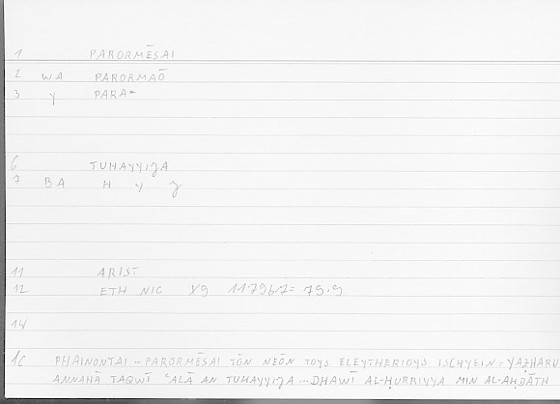 1 PARORMĒSAI
2 WA PARORMAŌ
3 Y PARA-
6 TUHAYYIJA
7 BA H Y J
11 ARIST
12 ETH NIC X9 1179b7= 79.9
14
16 PHAINONTAI – PARORMĒSAI TŌN NEŌN TOYS ELEYTHERIOYS ISCHYEIN : YAẒHARU
ANNAHĀ TAQWĪ ʿALĀ AN TUHAYYIJA – DHAWĪ AL-ḤURRIYYA MIN AL-AḤDĀTH